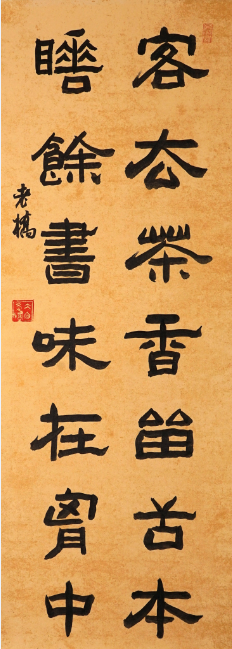 客去茶香留舌本
睡餘書味在胷中
老橋